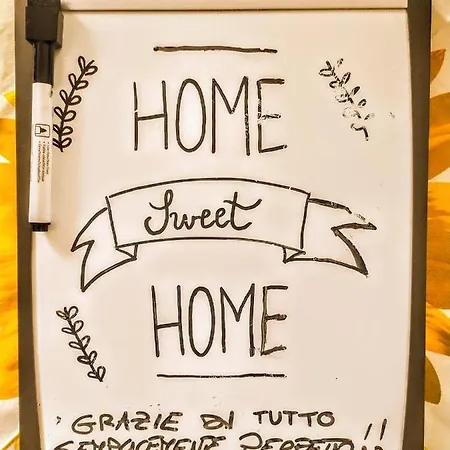 HOME
Sweet
HOME
GRAZIE DI TUTTO
SEMPLICEMENTE PERFETTO!!